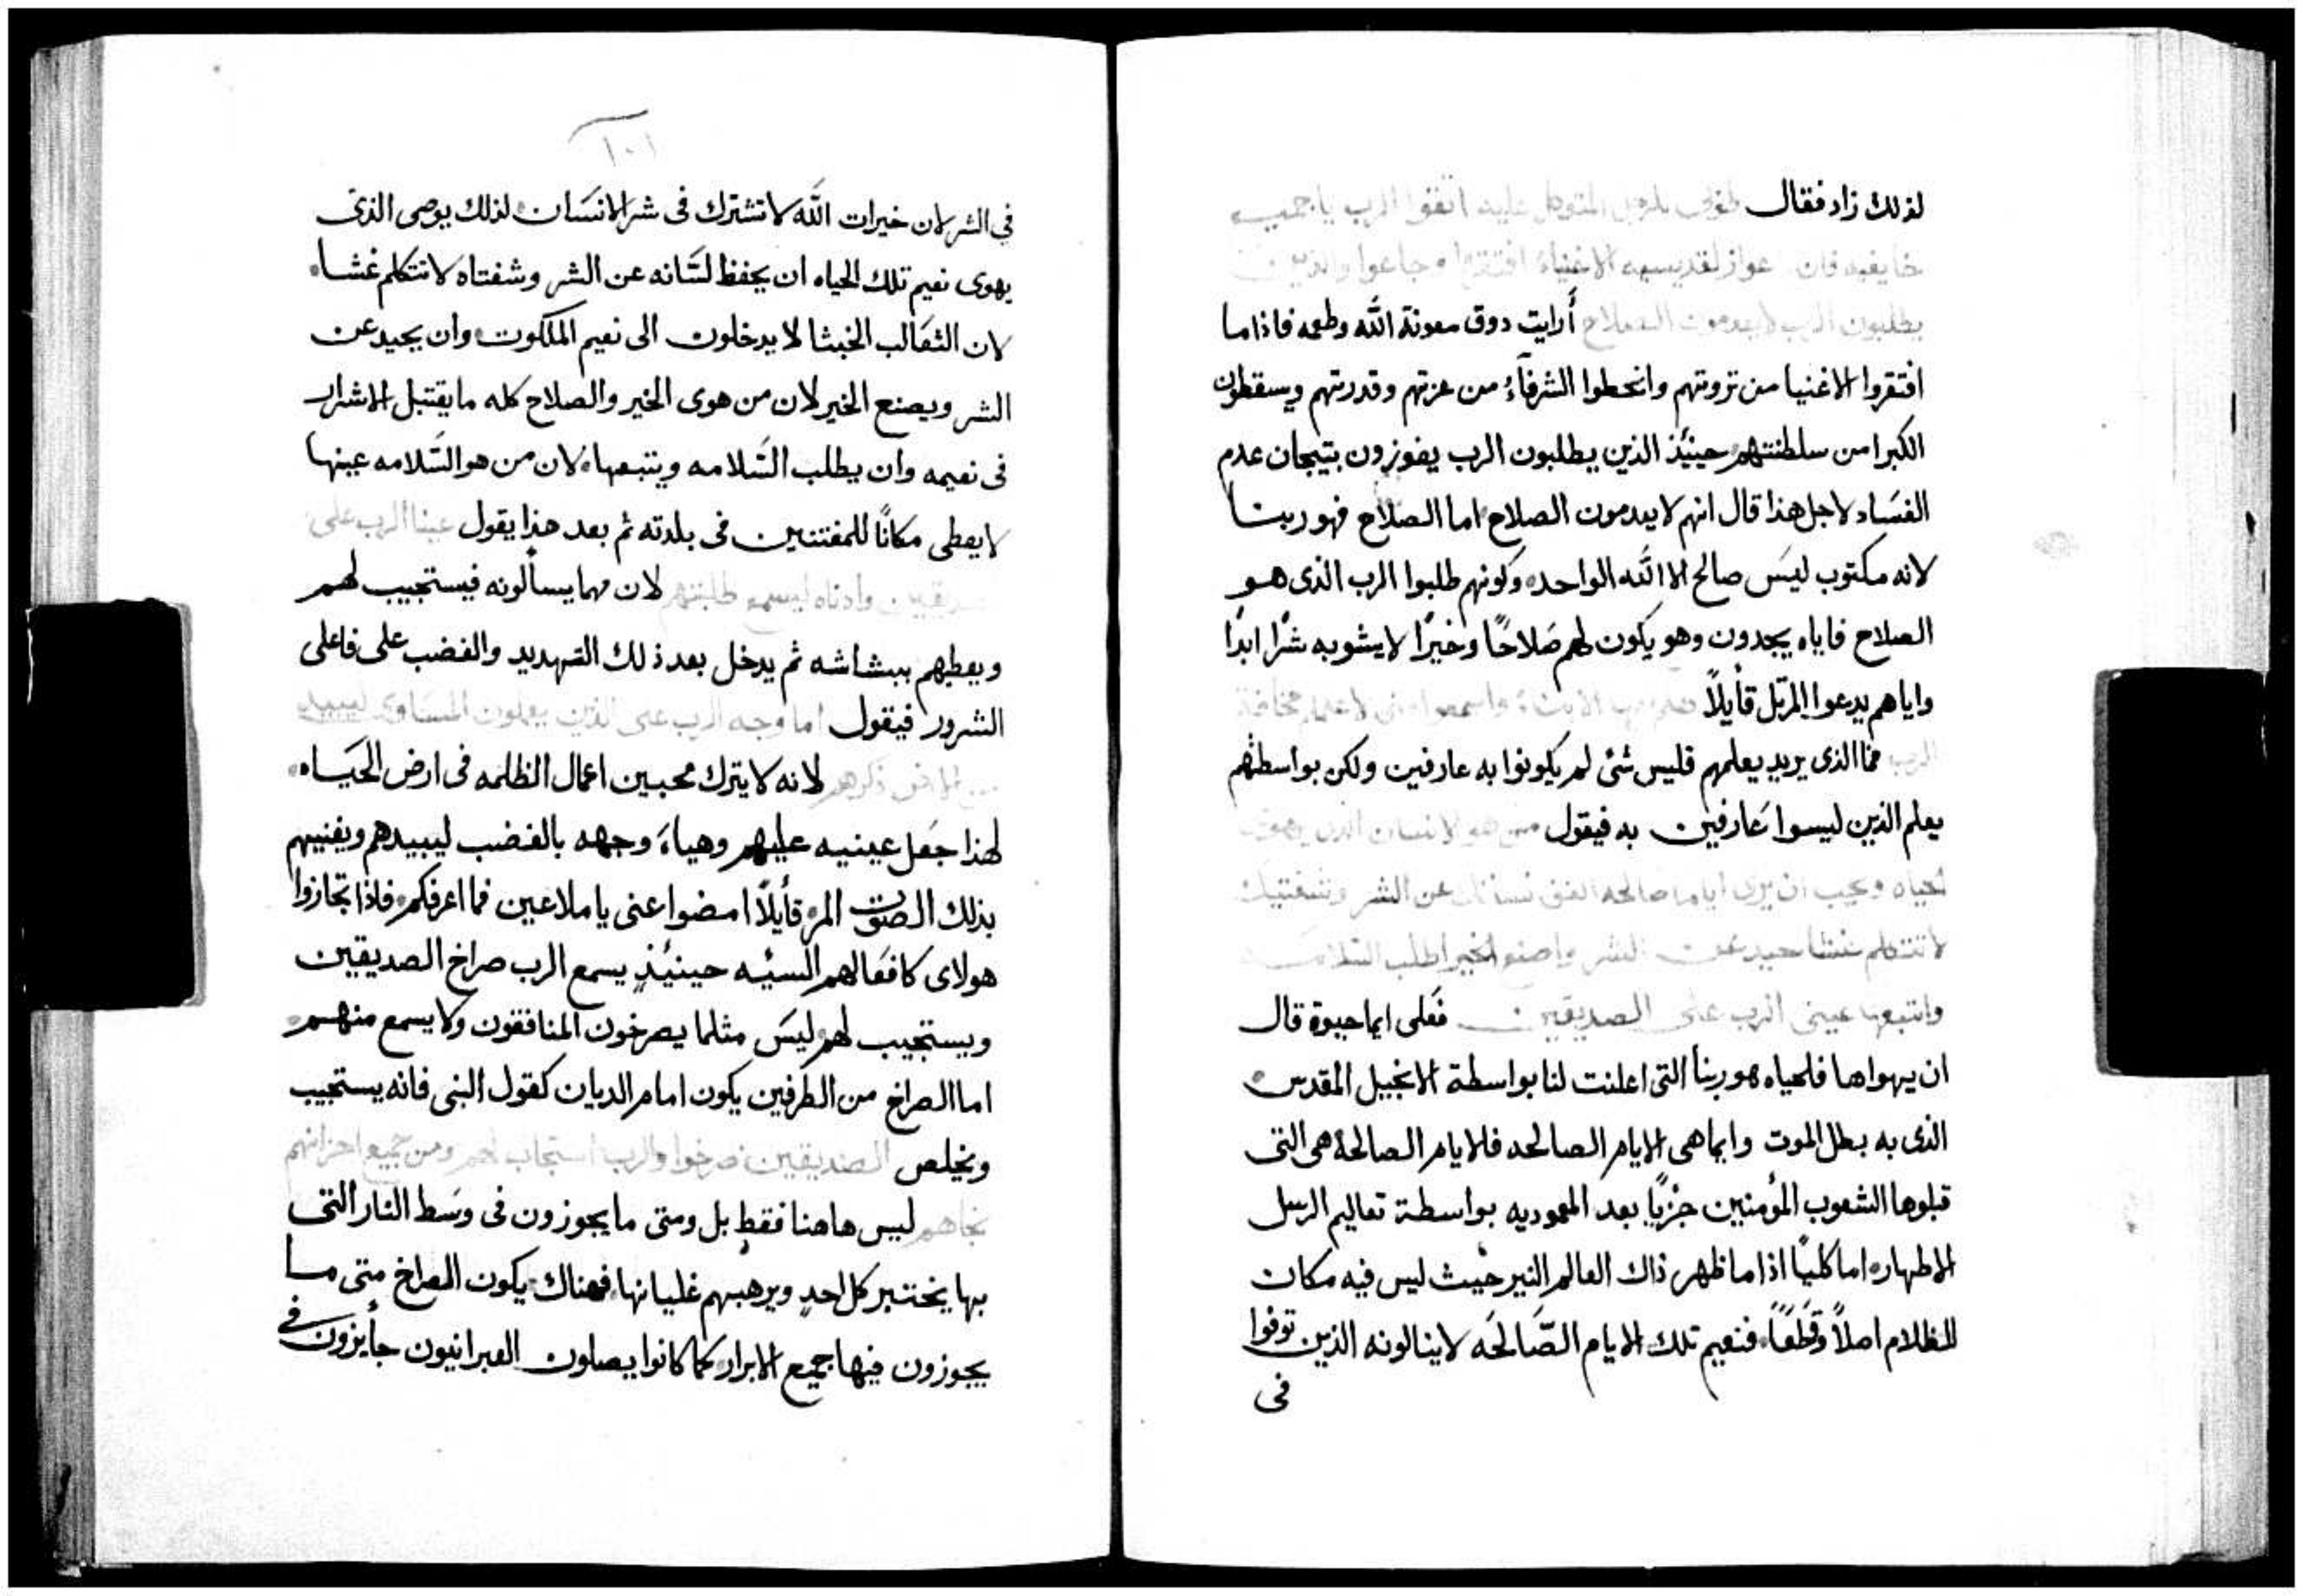 لذلك زاد فقال طوبى للرجل المتوكل عليه اتقوا الرب يا جميع
قديسيه الاغنياء افتقروا وجاعوا والذين
يطلبون الرب لا يعدمون الصلاح أرايت دوق معونة الله وطعمه فاذا ما
افتقروا الاغنيا من تروتهم وانحطوا الشرفآء من عزتهم وقدرتهم ويسقطون
الكبرا من سلطنتهم حينئذ الذين يطلبون الرب يفوزون بتيجان عدم
الفسَاد لاجل هذا قال انهم لا يعدمون الصلاح اما الصلاح فهو ربنا
لانه مكتوب ليسَ صالح الا الله الواحد وكونهم طلبوا الرب الذى هو
الصلاح فاياه يجدون وهو يكون لهم صَلاحًا وخيرًا لا يشوبه شرًا ابدًا
واياهم يدعوا المرتل قأيلاً الابناء واسمعوا منى لاعلمكم مخافة
الرب فما الذى يريد يعلمهم فليس شئ لم يكونوا به عارفين ولكن بواسطتهم
يعلم الذين ليسوا عَارفين به فيقول من هو الانسان الذى يهوى
الحياه ويحب ان يرى اياما صالحه اكفف لسانك عن الشر وشفتيك
لا تتكلم غشا حيد عن الشر واصنع الخير اطلب السلامه
واتبعها عينى الرب على الصديقين فعَلى ايما حيوة قال
ان يهواها فلحياه هو ربنا التى اعلنت لنا بواسطة الانجيل المقدس
الذى به بطل الموت وايما هى الايام الصالحه فالايام الصالحة هى التى
قبلوها الشعوب المؤمنين جزيًا بعد المعموديه بواسطة تعاليم الرسل
الاطهار اما كليًا اذا ما ظهر ذاك العالم النير حيث ليس فيه مكان
للظلام اصلاً وقطعًا فنعيم تلك الايام الصَّالحَه لا ينالونه الذين توفوا
فى
١٠١
فى الشر لان خيرات الله لا تشترك فى شر الانسَان لذلك يوصى الذى
يهوى نعيم تلك الحياه ان يحفظ لسَانه عن الشر وشفتاه لا تتكلم غشا
لان الثعَالب الخبثا لا يدخلون الى نعيم الملكوت وان يحيد عن
الشر ويصنع الخير لان من هوى الخير والصلاح كله ما يقتبل الاشرار
فى نعيمه وان يطلب السَلامه ويتبعها لان من هو السَلامه عينها
لا يعطى مكانًا للمفتنين فى بلدته ثم بعد هذا يقول عينا الرب على
الصديقين واذناه لسمع طلبتهم لان مهما يسألونه فيستجيب لهم
ويعطيهم ببشاشه ثم يدخل بعد ذلك التهديد والغضب على فاعلى
الشرور فيقول اما وجه الرب على الذين يعملون المسَاوى ليبيد
من الارض ذكرهم لانه لا يترك محبين اعمال الظلمه فى ارض الحيَاه
لهذا جعَل عينيه عليهم وهياءَ وجهه بالغضب ليبيدهم ويفنيهم
بذلك الصوَت المر قأيلاً امضوا عنى يا ملاعين فما اعرفكم فاذا تجازوا
هولاى كافعَالهم السيئه حينئذٍ يسمع الرب صراخ الصديقين
ويستجيب لهم ليسَ مثلما يصرخون المنافقون ولا يسمع منهم
اما الصراخ من الطرفين يكون امام الديان كقول النبى فانه يستجيب
ويخلص الصديقين صرخوا والرب استجاب لهم ومن جميع احزانهم
نجاهم ليس هاهنا فقط بل ومتى ما يجوزون فى وسَط النار التى
بها يختبر كل احدٍ ويرهبهم غليانها فهناك يكون الصراخ متى ما
يجوزون فيها جميع الابرار كما كانوا يصلون العبرانيون جأيزون فى